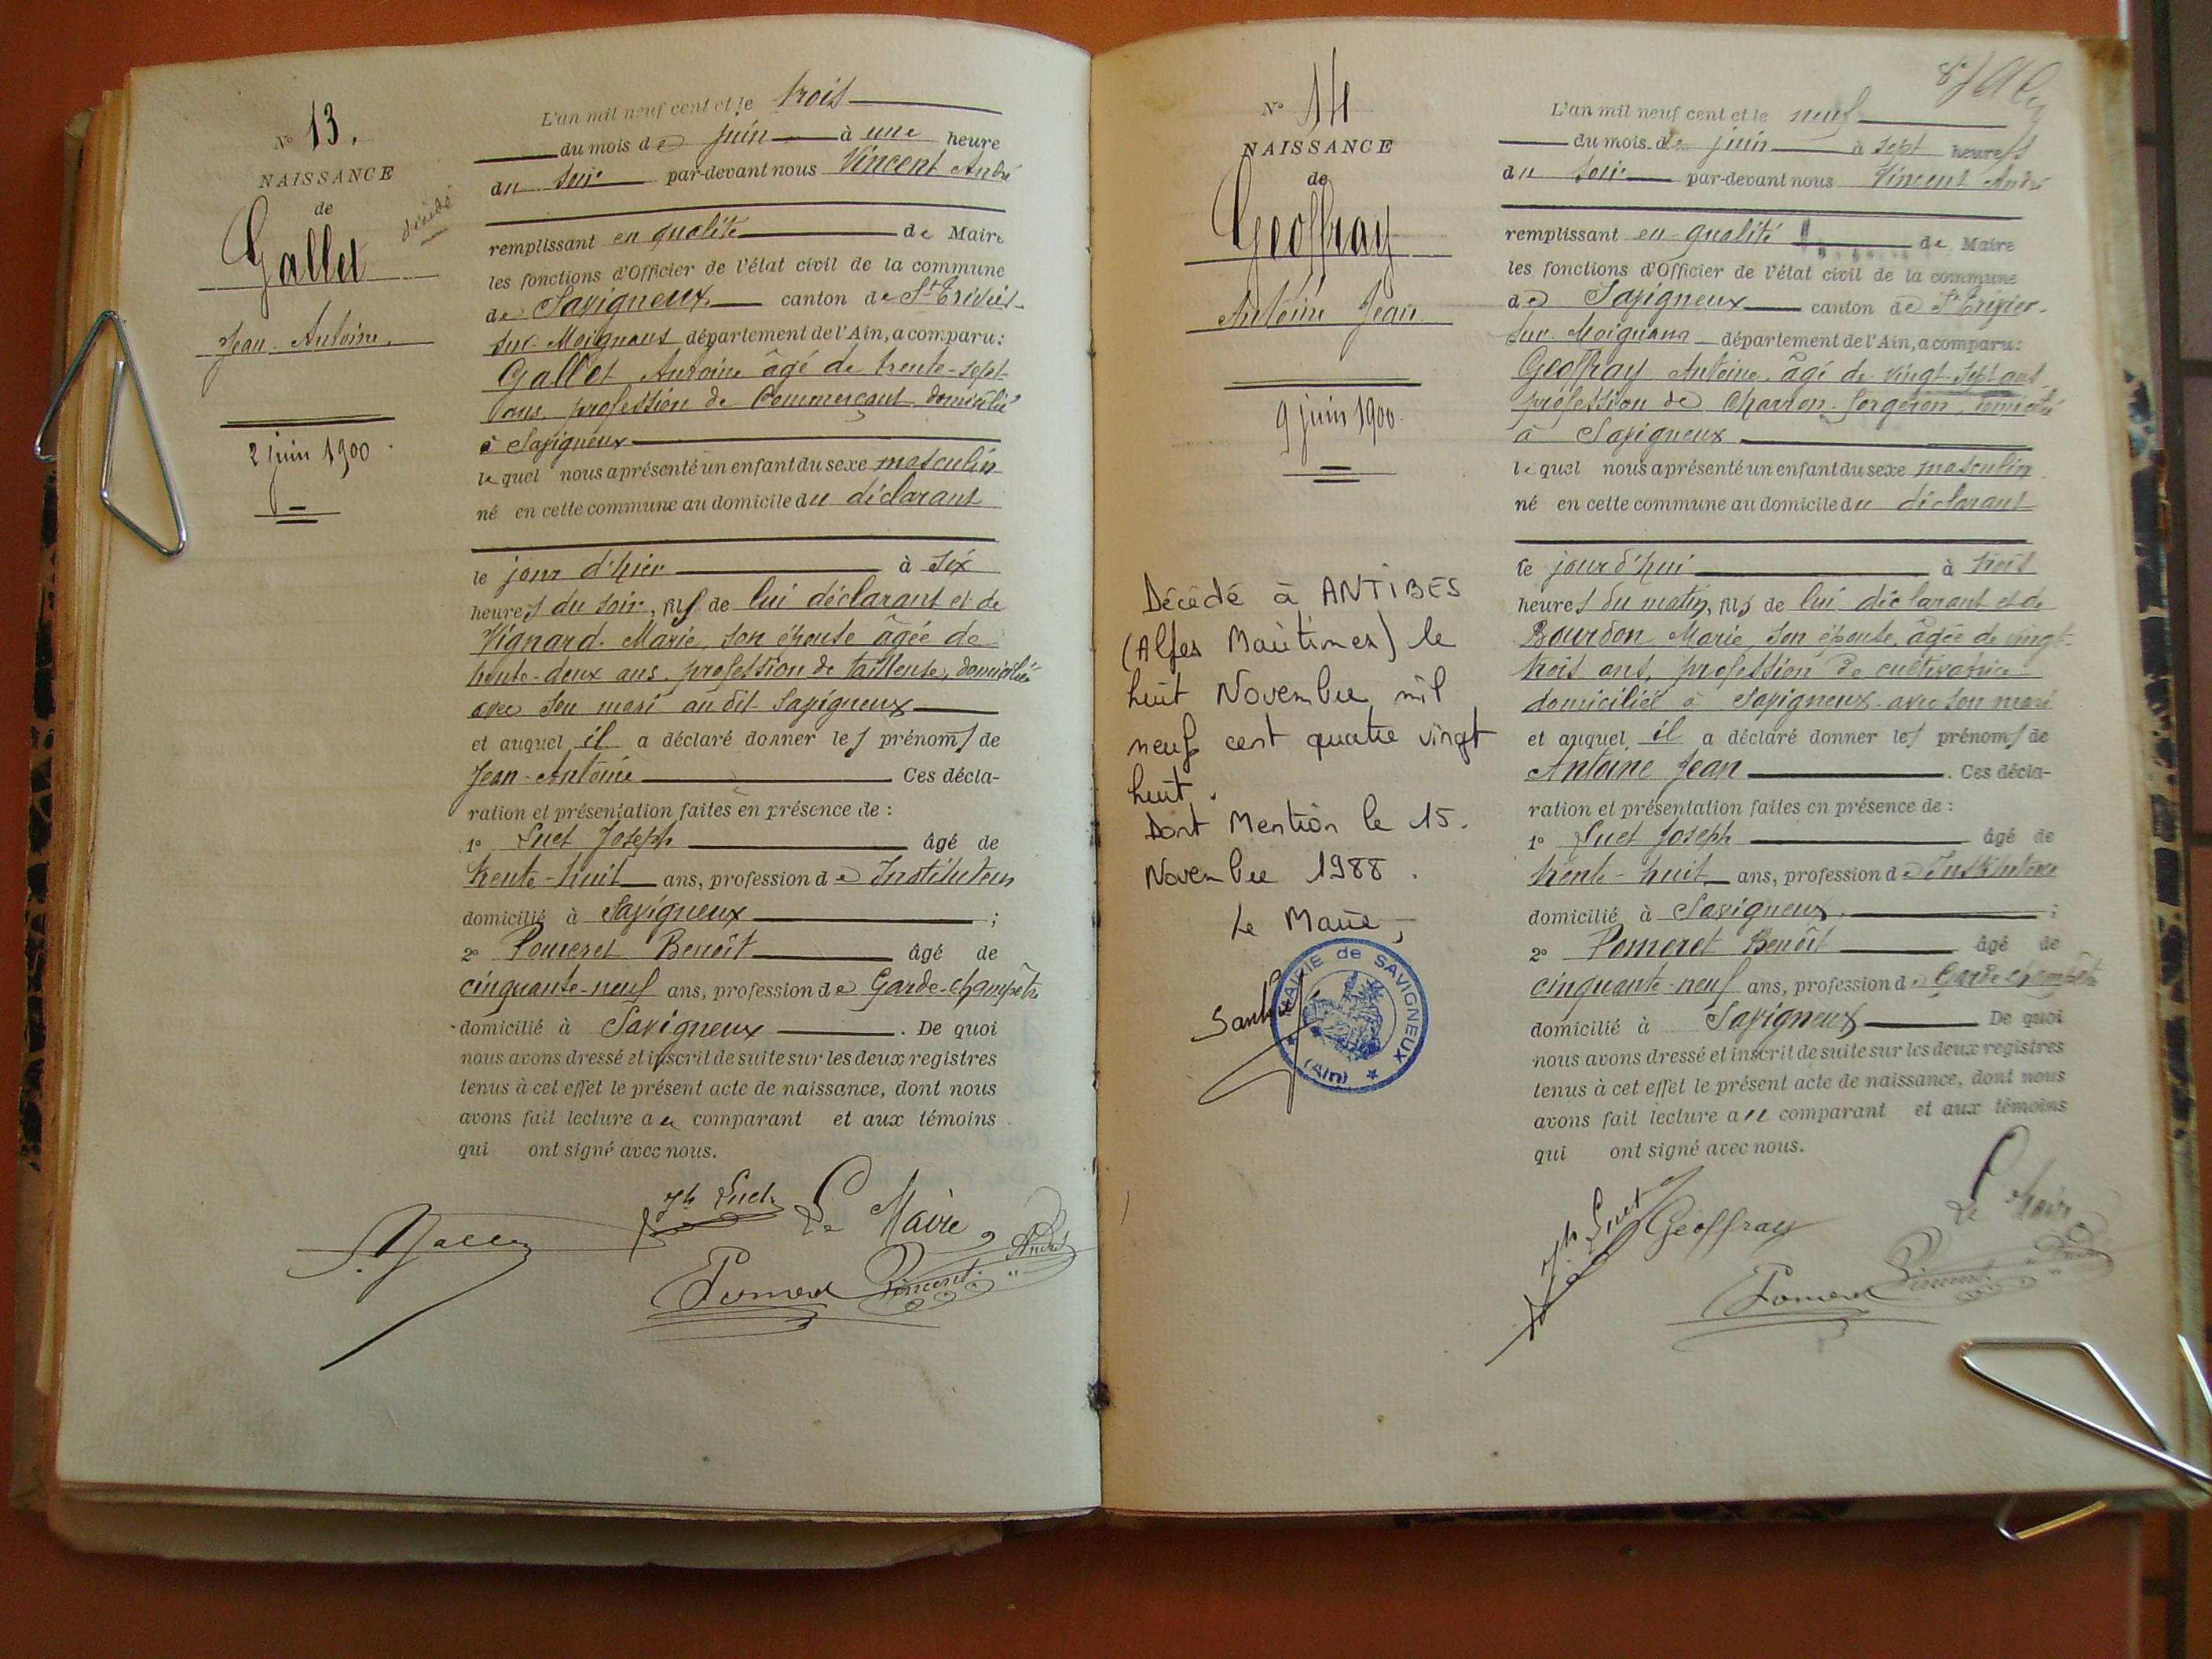 N° 13.
NAISSANCE
de
Gallet
décédé
Jean-Antoine.
2 juin 1900.
L'an mil neuf cent et le trois
du mois de juin à une heure
du soir par-devant nous Vincent André
remplissant en qualité de Maire
les fonctions d'Officier de l'état civil de la commune
de Savigneux canton de St Trivier-
sur-Moignans département de l'Ain, a comparu:
Gallet Antoine âgé de trente-sept
ans, profession de Commerçant domicilié
à Savigneux
lequel nous a présenté un enfant du sexe masculin
né en cette commune au domicile du déclarant
le jour d'hier à six
heures du soir, fils de lui déclarant et de
Vignard Marie, son épouse âgée de
trente-deux ans, profession de tailleuse, domiciliée
avec son mari audit Savigneux
et auquel il a déclaré donner les prénoms de
Jean-Antoine Ces décla-
ration et présentation faites en présence de :
1° Suet Joseph âgé de
trente-huit ans, profession de Instituteur
domicilié à Savigneux ;
2° Pomeret Benoît âgé de
cinquante-neuf ans, profession de Garde-champêtre
domicilié à Savigneux . De quoi
nous avons dressé et inscrit de suite sur les deux registres
tenus à cet effet le présent acte de naissance, dont nous
avons fait lecture au comparant et aux témoins
qui ont signé avec nous.
Jh Suet Le Maire,
A Gallet Pomeret Vincent André
N° 14
NAISSANCE
de
Geoffray
Antoine Jean
9 juin 1900.
Décédé à ANTIBES
(Alpes Maritimes) le
huit Novembre mil
neuf cent quatre vingt
huit.
Dont Mention le 15.
Novembre 1988.
Le Maire,
MAIRIE de SAVIGNEUX
(Ain)
L'an mil neuf cent et le neuf
du mois de juin à sept heures
du soir par-devant nous Vincent André
remplissant en qualité de Maire
les fonctions d'Officier de l'état civil de la commune
de Savigneux canton de St Trivier-
sur-Moignans département de l'Ain, a comparu:
Geoffray Antoine, âgé de vingt-sept ans
profession de Charron-forgeron, domicilié
à Savigneux
lequel nous a présenté un enfant du sexe masculin
né en cette commune au domicile du déclarant
le jour d'hui à trois
heures du matin, fils de lui déclarant et de
Bourdon Marie, son épouse, âgée de vingt-
trois ans, profession de cultivatrice
domiciliée à Savigneux avec son mari
et auquel il a déclaré donner les prénoms de
Antoine Jean . Ces décla-
ration et présentation faites en présence de :
1° Suet Joseph âgé de
trente-huit ans, profession de Instituteur
domicilié à Savigneux. ;
2° Pomeret Benoît âgé de
cinquante-neuf ans, profession de Garde-champêtre
domicilié à Savigneux De quoi
nous avons dressé et inscrit de suite sur les deux registres
tenus à cet effet le présent acte de naissance, dont nous
avons fait lecture au comparant et aux témoins
qui ont signé avec nous.
Jh Suet Geoffray Le Maire
Pomeret Vincent André